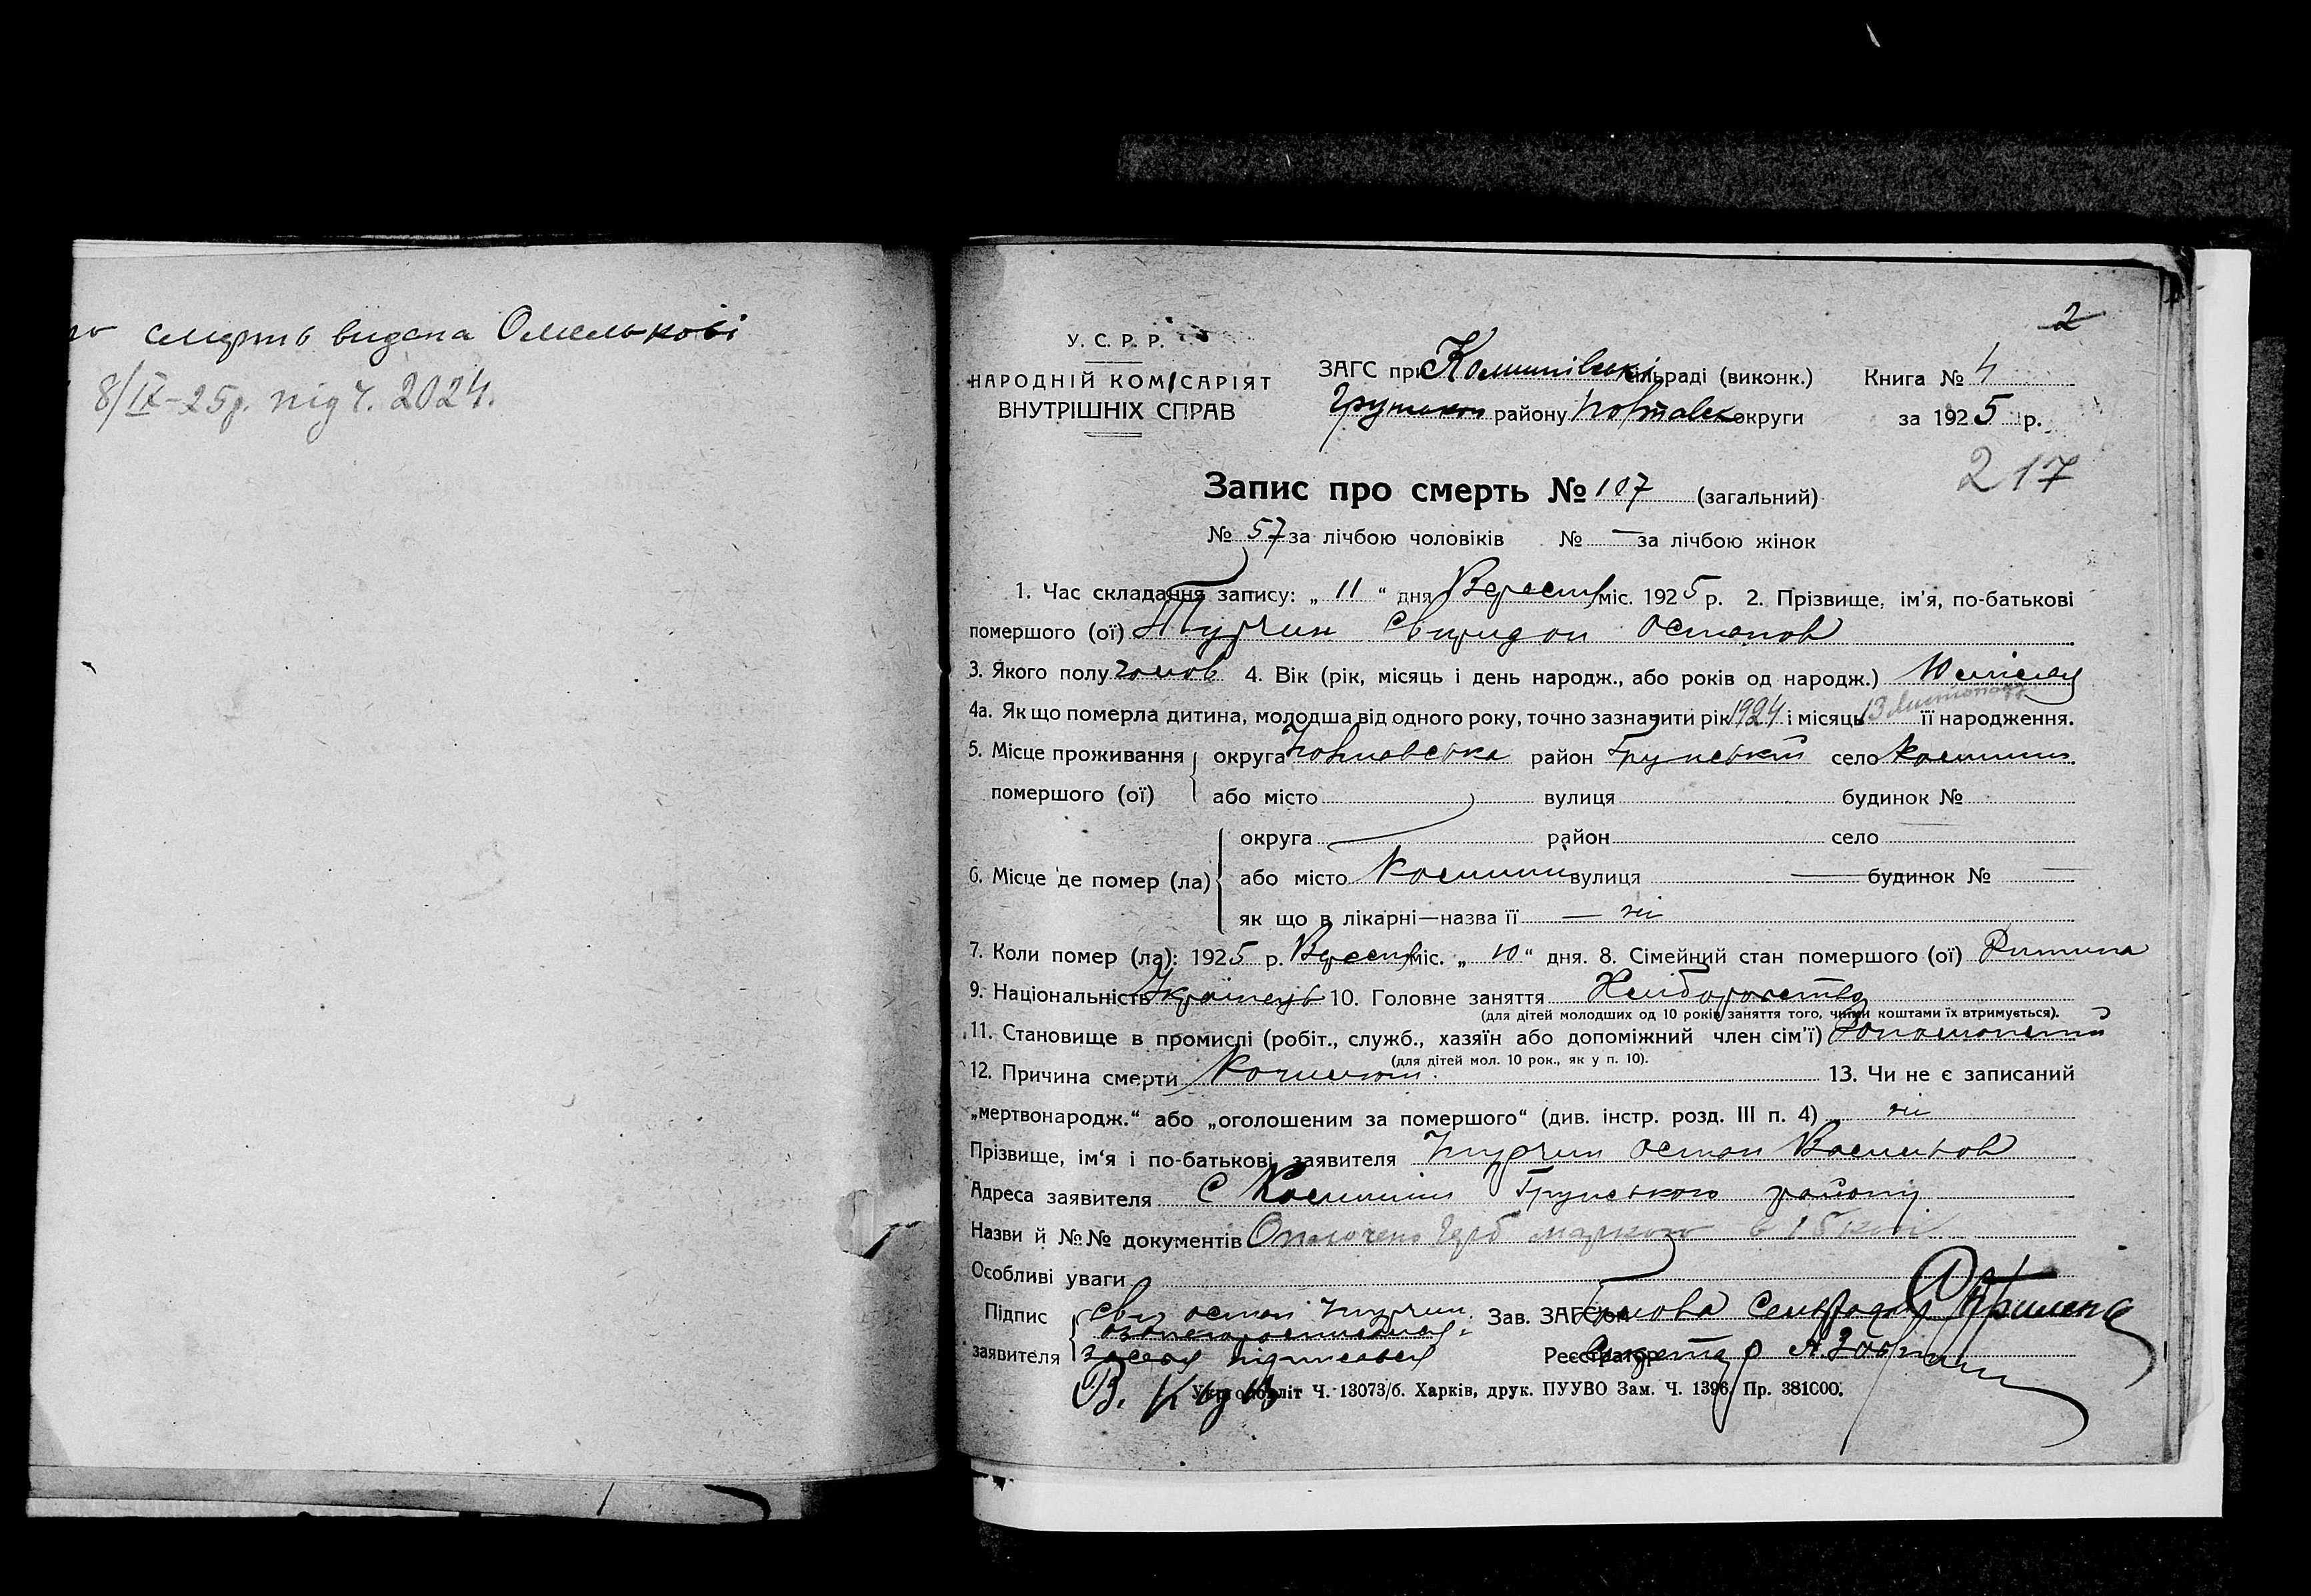 смерть видана Омелькові
8/IX-25р. під ч. 2024.
2
У. С. Р. Р.
НАРОДНІЙ КОМІСАРІЯТ
ВНУТРІШНІХ СПРАВ
ЗАГС при сільраді (виконк.)
району Полтавськ округи
Книга № 4
за 1925 р.
217
Запис про смерть № 107 (загальний)
№ 57 за лічбою чоловіків № — за лічбою жінок
1. Час складання запису: „ 11 “ дня Вересня міс. 1925 р. 2. Прізвище, ім’я, по-батькові
помершого (ої) Турчин Свиридон Остапов
3. Якого полу чолов 4. Вік (рік, місяць і день народж., або років од народж.) 10 місяця
4а. Як що померла дитина, молодша від одного року, точно зазначити рік 1924 і місяць 13 листопаду її народження.
5. Місце проживання округа Полтавська район Грунський село
помершого (ої) або місто вулиця будинок №
округа район село
6. Місце де помер (ла) або місто вулиця — будинок № —
як що в лікарні—назва її — ні
7. Коли помер (ла): 1925 р. Вересня міс. „ 10 “ дня. 8. Сімейний стан помершого (ої) Дитина
9. Національність Українець 10. Головне заняття Хліборобство
(для дітей молодших од 10 років заняття того, чиїми коштами їх втримується).
11. Становище в промислі (робіт., служб., хазяїн або допоміжний член сім’ї)
(для дітей мол. 10 рок., як у п. 10).
12. Причина смерти 13. Чи не є записаний
„мертвонародж.“ або „оголошеним за помершого“ (див. інстр. розд. III п. 4) ні
Прізвище, ім‘я і по-батькові заявителя Турчин Остап Васильков
Адреса заявителя С Грунського району
Назви й №№ документів Оплочено Герб маркою в 15 коп
Особливі уваги
Підпис Остап Турчин Зав. ЗАГС'ом Голова Сельради
заявителя підписався Реєстратор Секретар
В. Куць
Укрголовліт Ч. 13073/б. Харків, друк. ПУУВО Зам. Ч. 1396. Пр. 381000.